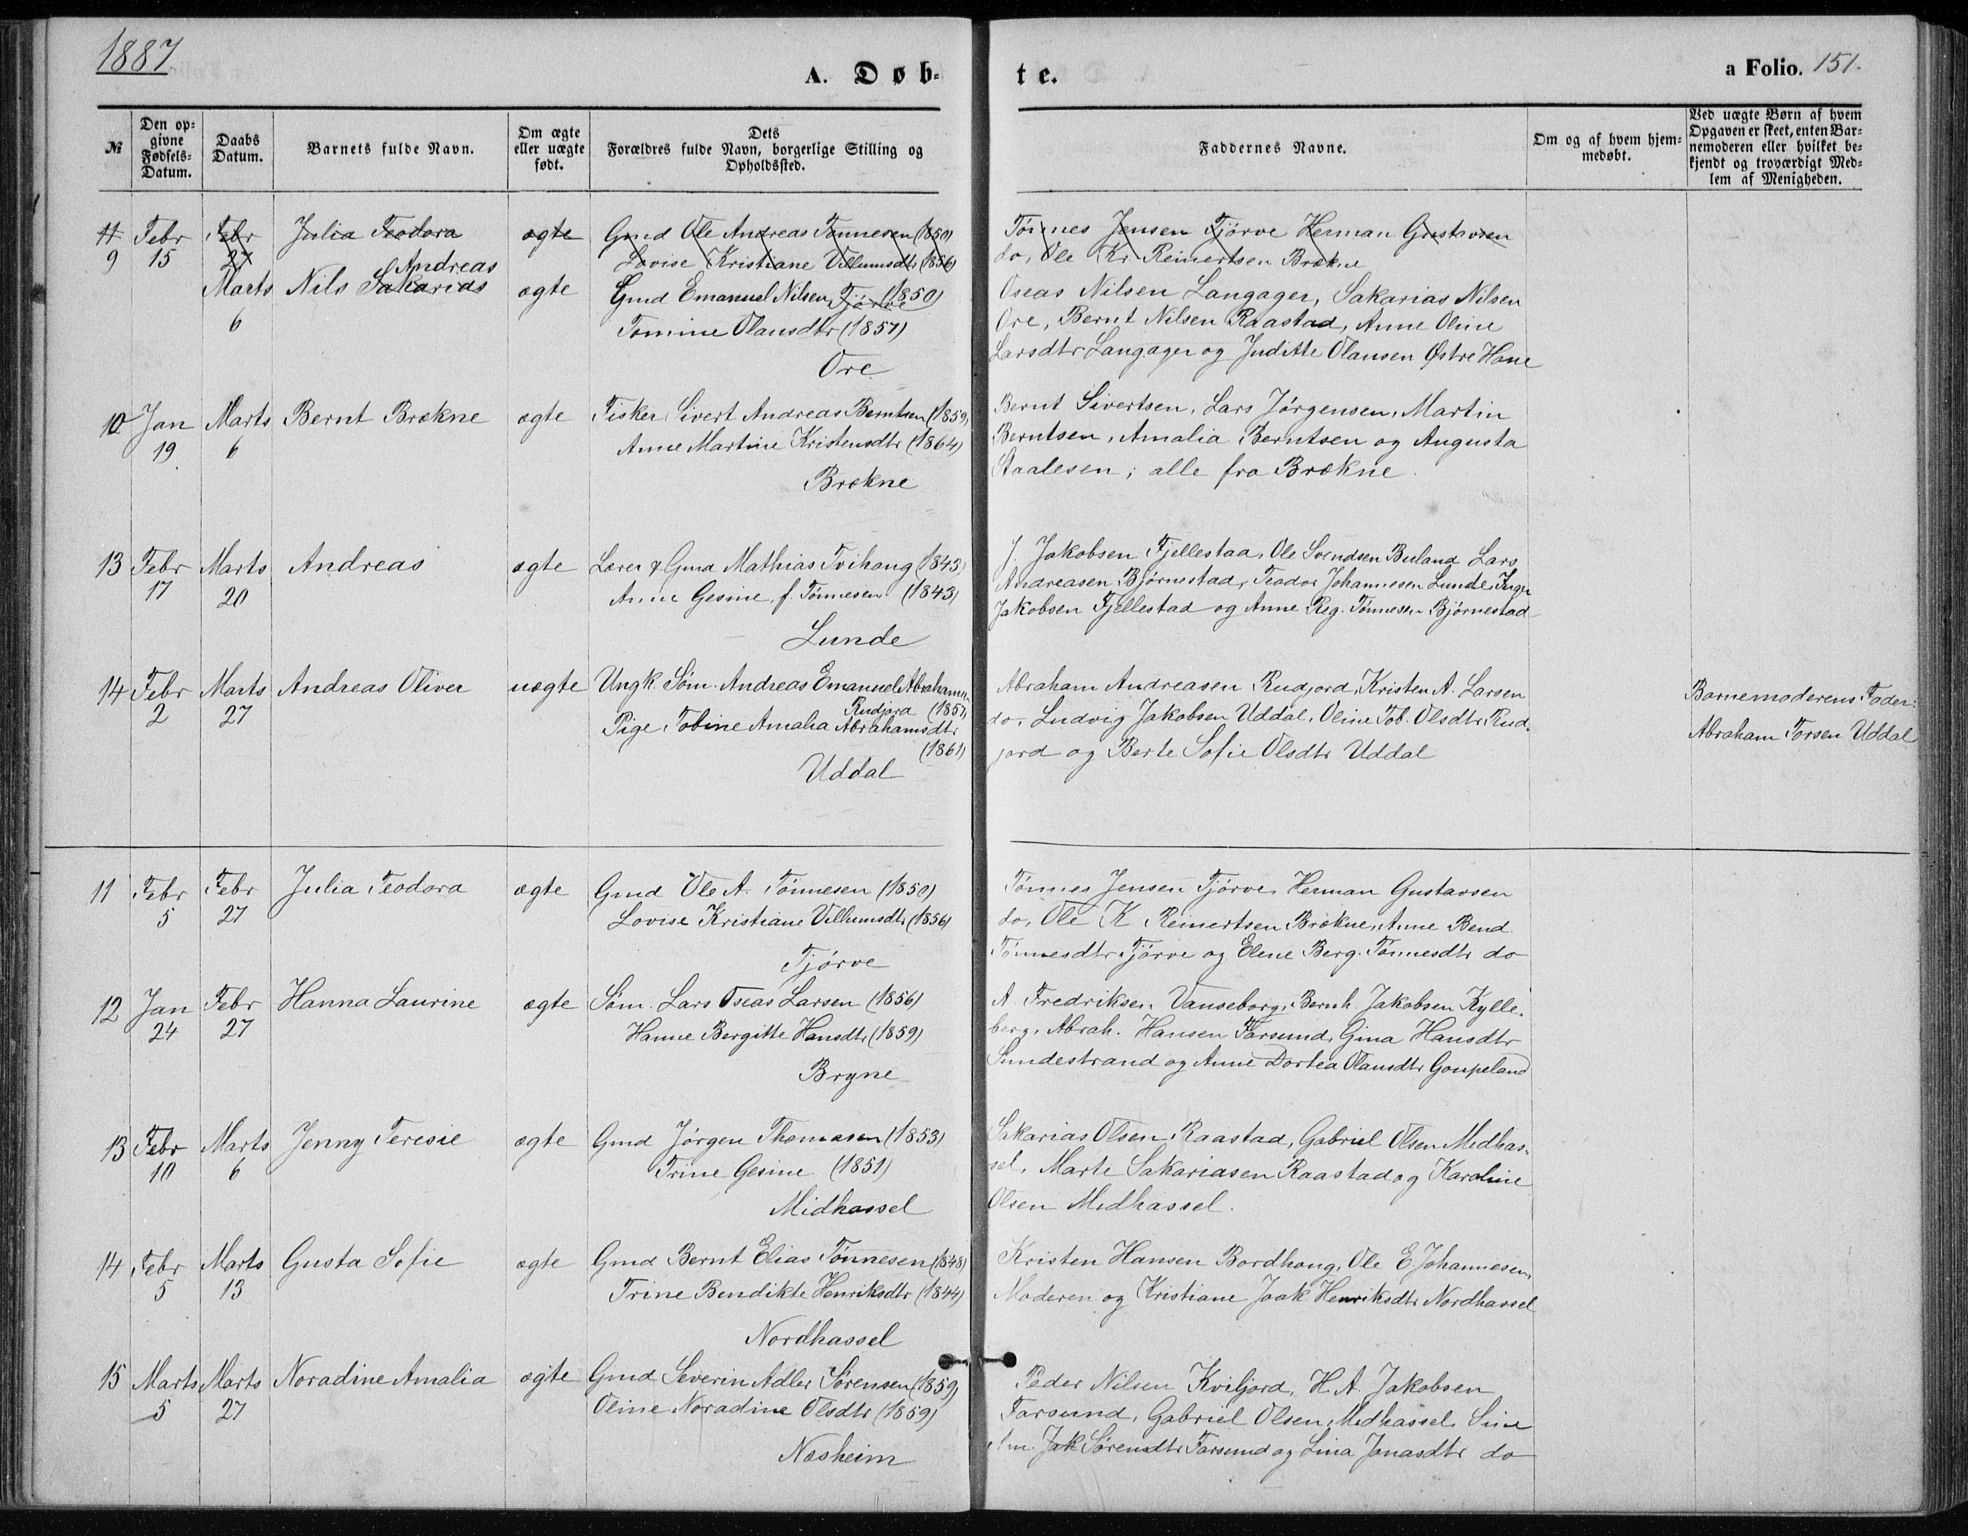 1887
A. Døb-
te.
a Folio. 151.
№
Den op-
givne
Fødsels-
Datum.
Daabs
Datum.
Barnets fulde Navn.
Om ægte
eller uægte
født.
Dets
Forældres fulde Navn, borgerlige Stilling og
Opholdssted.
Faddernes Navne.
Om og af hvem hjem-
medøbt.
Ved uægte Børn af hvem
Opgaven er skeet, enten Bar-
nemoderen eller hvilket be-
kjendt og troværdigt Med-
lem af Menigheden.
11 Febr Febr Julia Teodora ægte Gmd Ole Andreas Tønnesen (1850) Tønnes Jensen Tjørve Herman Gustavsen
9 15 27 Lovise Kristiane Vilhumsdtr (1856) do, Ole Kr. Reinertsen Brækne
Andreas
Marts Nils Sakarias ægte Gmd Emanuel Nilsen Tjørve (1850) Oseas Nilsen Langager, Sakarias Nilsen
6 Tomine Olausdtr (1857) Ore, Bernt Nilsen Raastad, Anne Oline
Ore Larsdtr Langager og Juditte Olausen Østre Hane
10 Jan Marts Bernt Brækne ægte Fisker Sivert Andreas Berntsen (1859) Bernt Sivertsen, Lars Jørgensen, Martin
19 6 Anne Martine Kristensdtr (1864) Berntsen, Amalia Berntsen og Augusta
Brækne Staalesen; alle fra Brækne.
13 Febr Marts Andreas ægte Lærer & Gmd Mathias Tvihaug (1843) J. Jakobsen Fjellestad, Ole Svendsen Buland Lars
17 20 Anne Gesine f. Tønnesen (1843) Andreasen Bjørnestad, Teodor Johannesen Lunde, Inger
Lunde Jakobsen Fjellestad og Anne Reg. Tønnesen Bjørnestad
14 Febr Marts Andreas Oliver uægte Ungk. Søm. Andreas Emanuel Abrahams. Abraham Andreasen Rudjord, Kristen A. Larsen Barnemoderens Fader:
2 27 Rudjord (1857) do, Ludvig Jakobsen Uddal, Oline Tob. Olsdtr Rud- Abraham Torsen Uddal
Pige Tobine Amalia Abrahamsdtr jord og Berte Sofie Olsdtr Uddal
(1861)
Uddal
11 Febr Febr Julia Teodora ægte Gmd Ole A. Tønnesen (1850) Tønnes Jensen Tjørve, Herman Gustavsen
5 27 Lovise Kristiane Vilhumsdtr (1856) do, Ole K. Reinertsen Brækne, Anne Bend.
Tjørve Tønnesdtr Tjørve og Elene Berg. Tønnesdtr do
12 Jan Febr Hanna Laurine ægte Søm. Lars Oseas Larsen (1856) A. Fredriksen Vanseborg, Bernh. Jakobsen Kylle-
24 27 Hanne Bergitte Hansdtr (1859) berg, Abrah. Hansen Farsund, Gina Hansdtr
Bryne Sundestrand og Anne Dortea Olausdtr Goupeland
13 Febr Marts Jenny Teresie ægte Gmd Jørgen Thomasen (1853) Sakarias Olsen Raastad, Gabriel Olsen Midhas-
10 6 Trine Gesine (1851) sel, Marte Sakariasen Raastad og Karoline
Midhassel Olsen Midhassel.
14 Febr Marts Gusta Sofie ægte Gmd Bernt Elias Tønnesen (1848) Kristen Hansen Bordhaug, Ole E Johannesen,
5 13 Trine Bendikte Henriksdtr (1844) Moderen og Kristiane Jaak Henriksdtr Nordhassel
Nordhassel
15 Marts Marts Noradine Amalia ægte Gmd Severin Adler Sørensen (1859) Peder Nilsen Kviljord, H. A. Jakobsen
5 27 Oline Noradine Olsdtr (1859) Farsund, Gabriel Olsen Midhassel, Sine
Næsheim Jak Sørensdtr Farsund og Lina Jonasdtr do